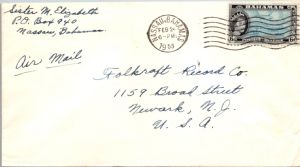 Sister M. Elizabeth
P.O. Box 940
Nassau, Bahamas
NASSAU BAHAMAS
FEB 2
6 - PM
1955
BAHAMAS
Air Mail
Folkraft Record Co.
1159 Broad Street
Newark, N.J.
U.S.A.